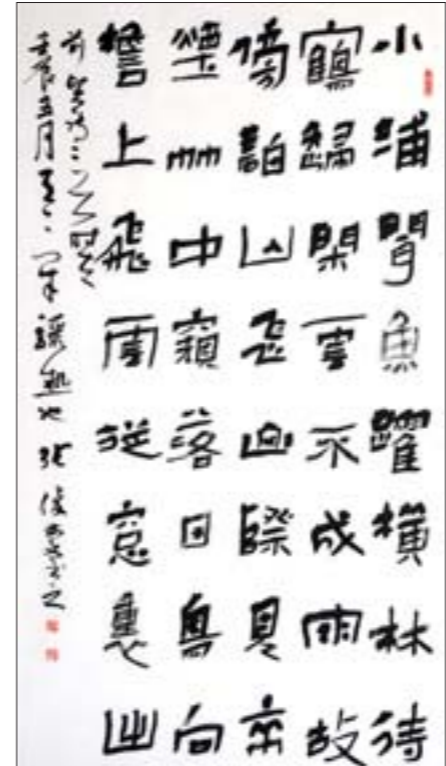 小浦聞魚躍橫林待
鶴歸閑雲不成雨故
傍碧山飛山際見來
煙竹中窺落日鳥向
檐上飛雲從窗裏出
壬辰五月